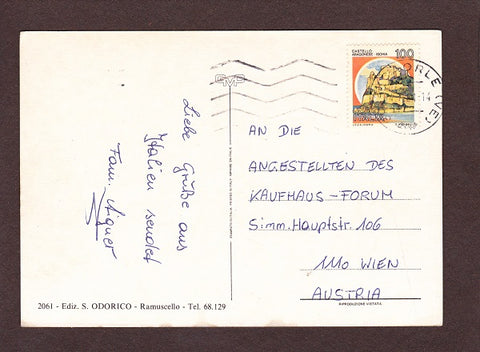 Liebe Grüße aus
Italien sendet
Fam. Aigner
2061 - Ediz. S. ODORICO - Ramuscello - Tel. 68.129
CASTELLO
ARAGONESE - ISCHIA
100
ORLE (VE)
AN DIE
ANGESTELLTEN DES
KAUFHAUS - FORUM
Simm. Hauptstr. 106
1110 WIEN
AUSTRIA
RIPRODUZIONE VIETATA